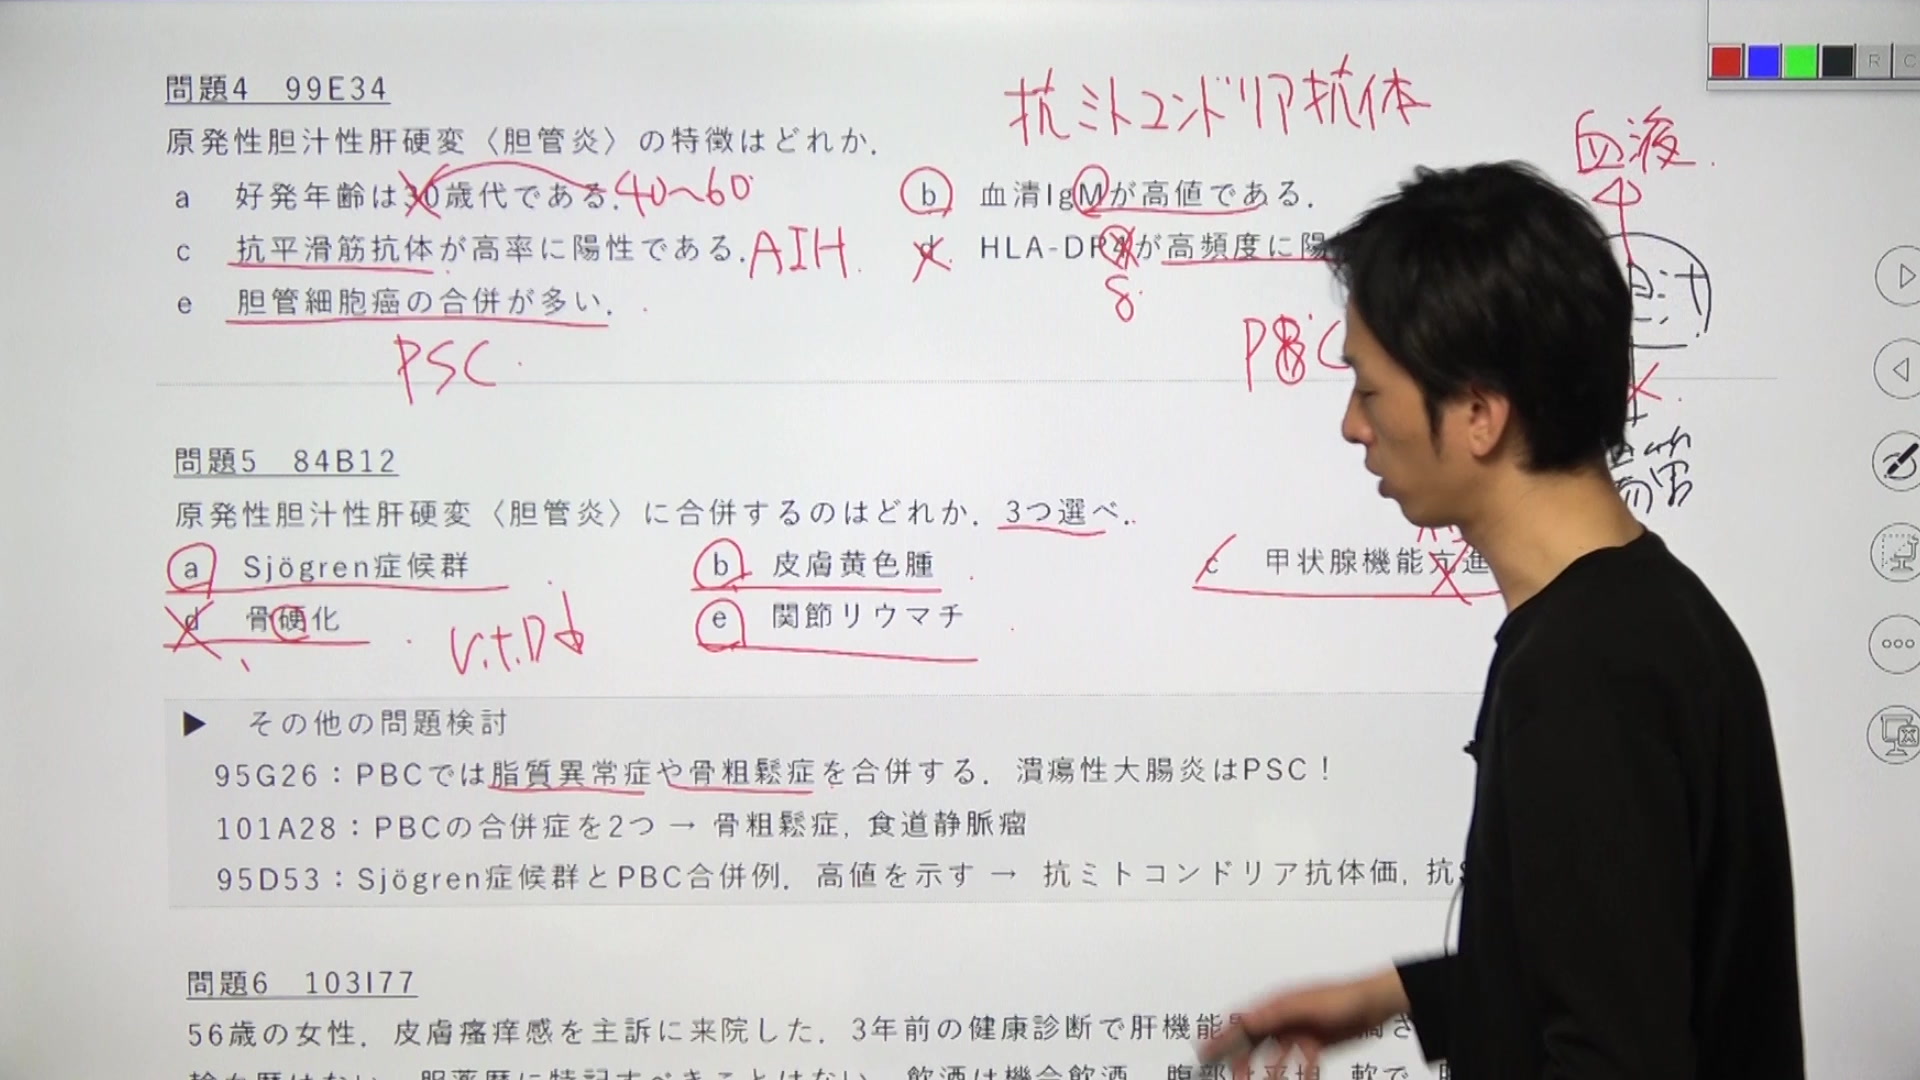 問題4 99E34
抗ミトコンドリア抗体
血液
原発性胆汁性肝硬変〈胆管炎〉の特徴はどれか.
a 好発年齢は30歳代である. 40~60
b 血清IgMが高値である.
c 抗平滑筋抗体が高率に陽性である. AIH
d HLA-DR4が高頻度に陽
8
e 胆管細胞癌の合併が多い.
PSC
PBC
問題5 84B12
原発性胆汁性肝硬変〈胆管炎〉に合併するのはどれか. 3つ選べ.
a Sjögren症候群
b 皮膚黄色腫
c 甲状腺機能亢進
d 骨硬化
Vit.D↓
e 関節リウマチ
▶ その他の問題検討
95G26：PBCでは脂質異常症や骨粗鬆症を合併する. 潰瘍性大腸炎はPSC！
101A28：PBCの合併症を2つ → 骨粗鬆症, 食道静脈瘤
95D53：Sjögren症候群とPBC合併例. 高値を示す → 抗ミトコンドリア抗体価, 抗
問題6 103I77
56歳の女性. 皮膚瘙痒感を主訴に来院した. 3年前の健康診断で肝機能